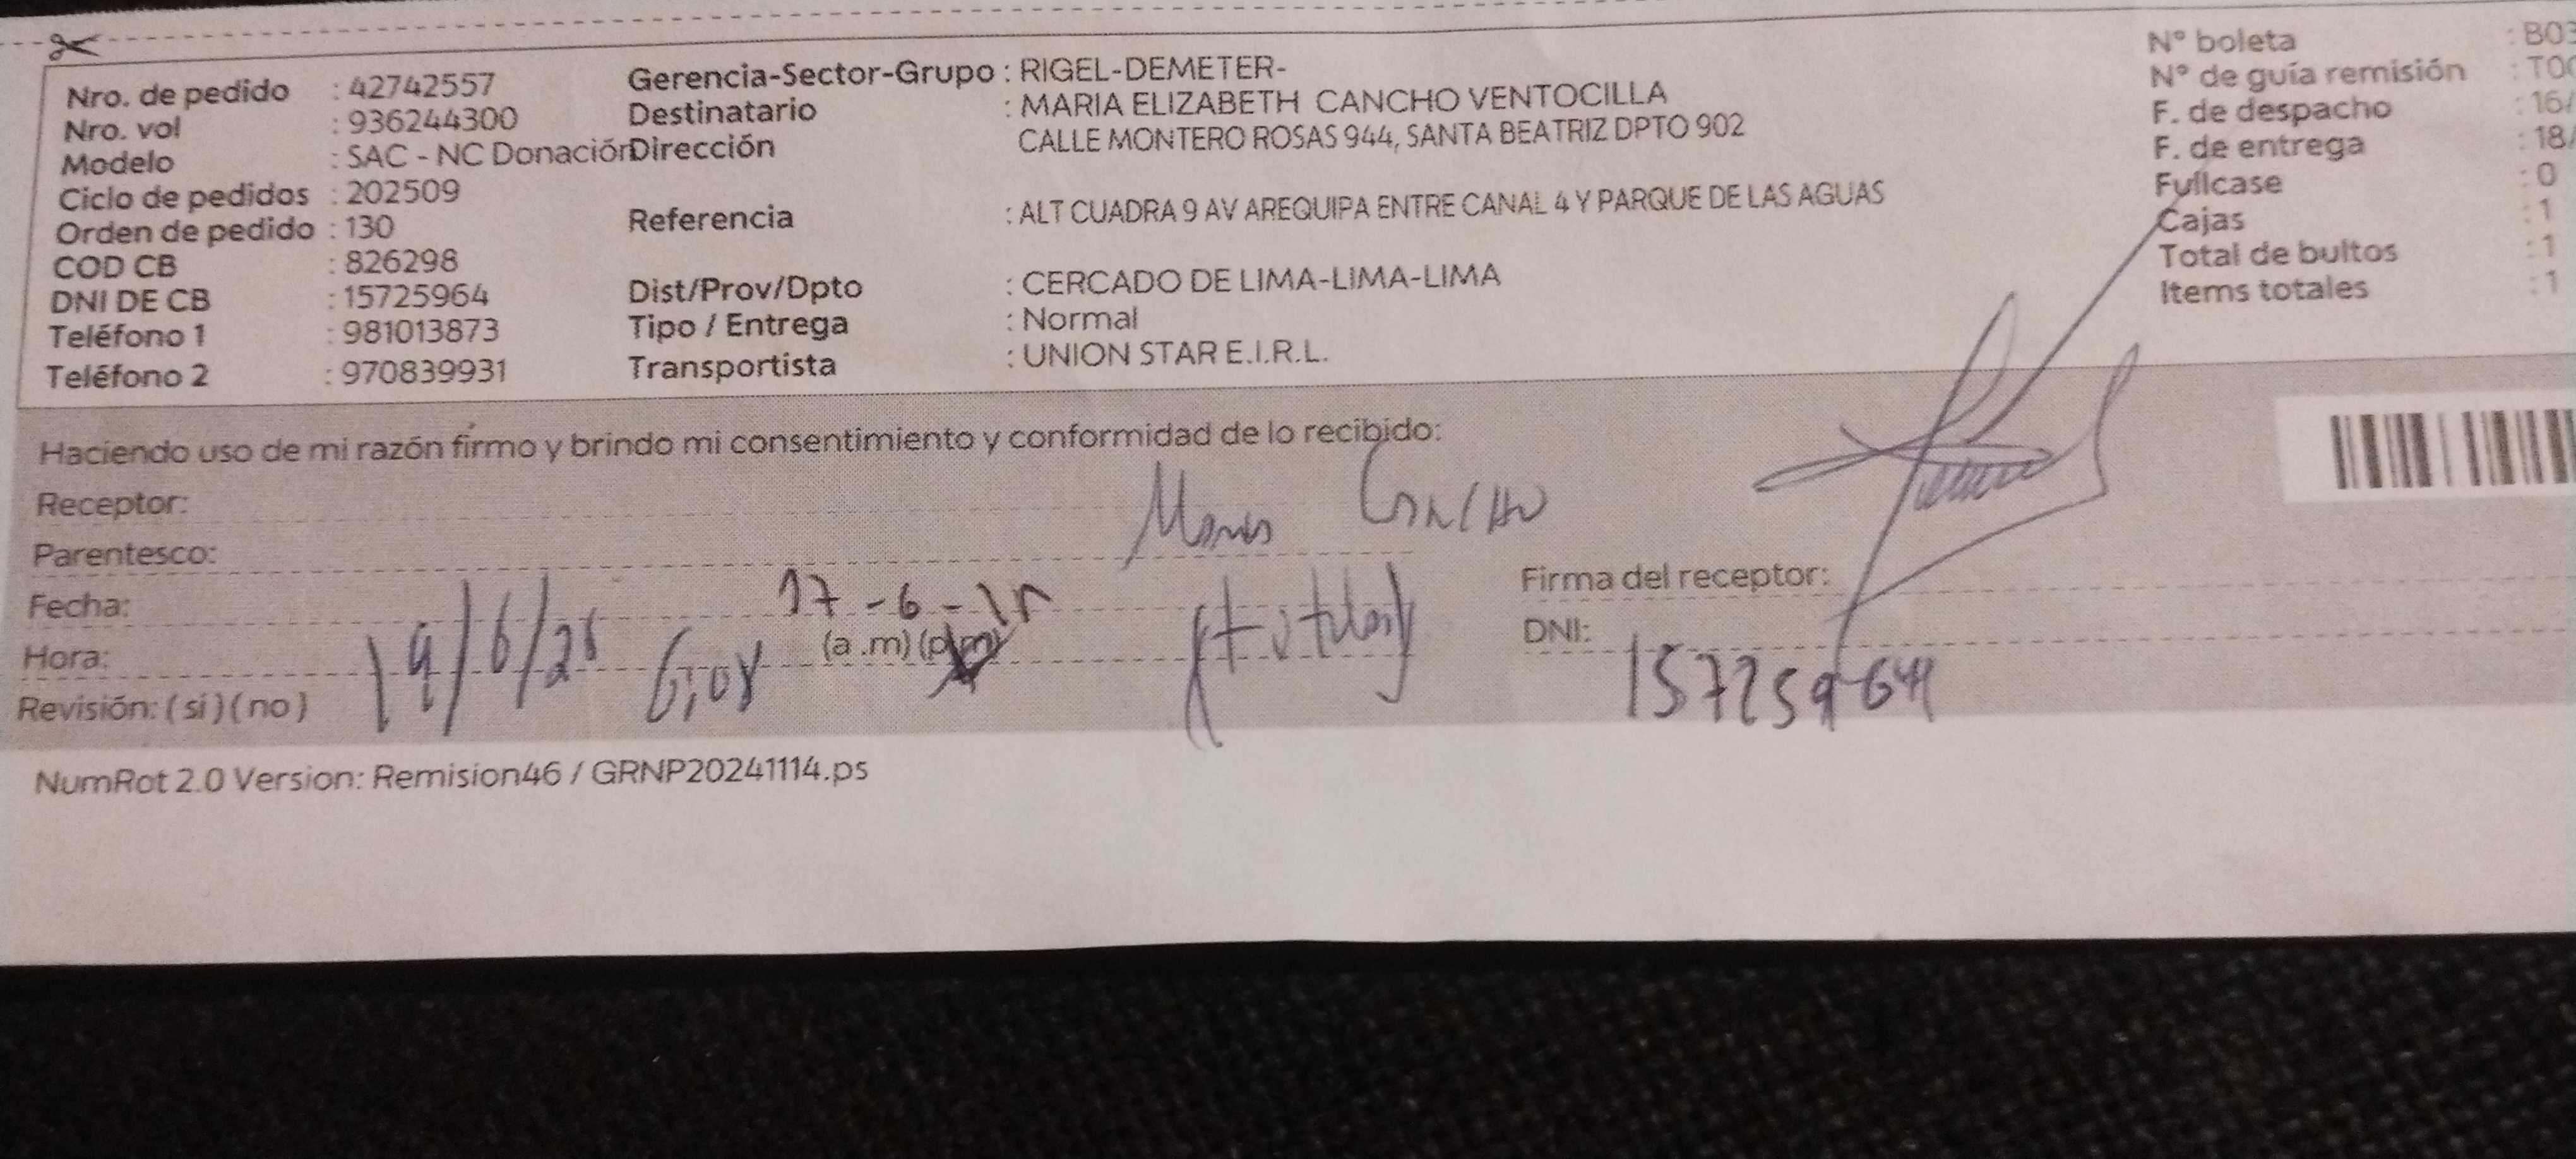 Nro. de pedido : 42742557
Nro. vol : 936244300
Modelo : SAC - NC Donación
Ciclo de pedidos : 202509
Orden de pedido : 130
COD CB : 826298
DNI DE CB : 15725964
Teléfono 1 : 981013873
Teléfono 2 : 970839931
Gerencia-Sector-Grupo : RIGEL-DEMETER-
Destinatario : MARIA ELIZABETH CANCHO VENTOCILLA
Dirección CALLE MONTERO ROSAS 944, SANTA BEATRIZ DPTO 902
Referencia : ALT CUADRA 9 AV AREQUIPA ENTRE CANAL 4 Y PARQUE DE LAS AGUAS
Dist/Prov/Dpto : CERCADO DE LIMA-LIMA-LIMA
Tipo / Entrega : Normal
Transportista : UNION STAR E.I.R.L.
N° boleta : B03
N° de guía remisión : T00
F. de despacho : 16/
F. de entrega : 18/
Fullcase : 0
Cajas : 1
Total de bultos : 1
Items totales : 1
Haciendo uso de mi razón firmo y brindo mi consentimiento y conformidad de lo recibido:
Receptor:
Parentesco:
Fecha: 17-6-
Hora: (a.m) (p.m)
Revisión: (si) (no)
Firma del receptor:
DNI: 15725964
NumRot 2.0 Version: Remision46 / GRNP20241114.ps